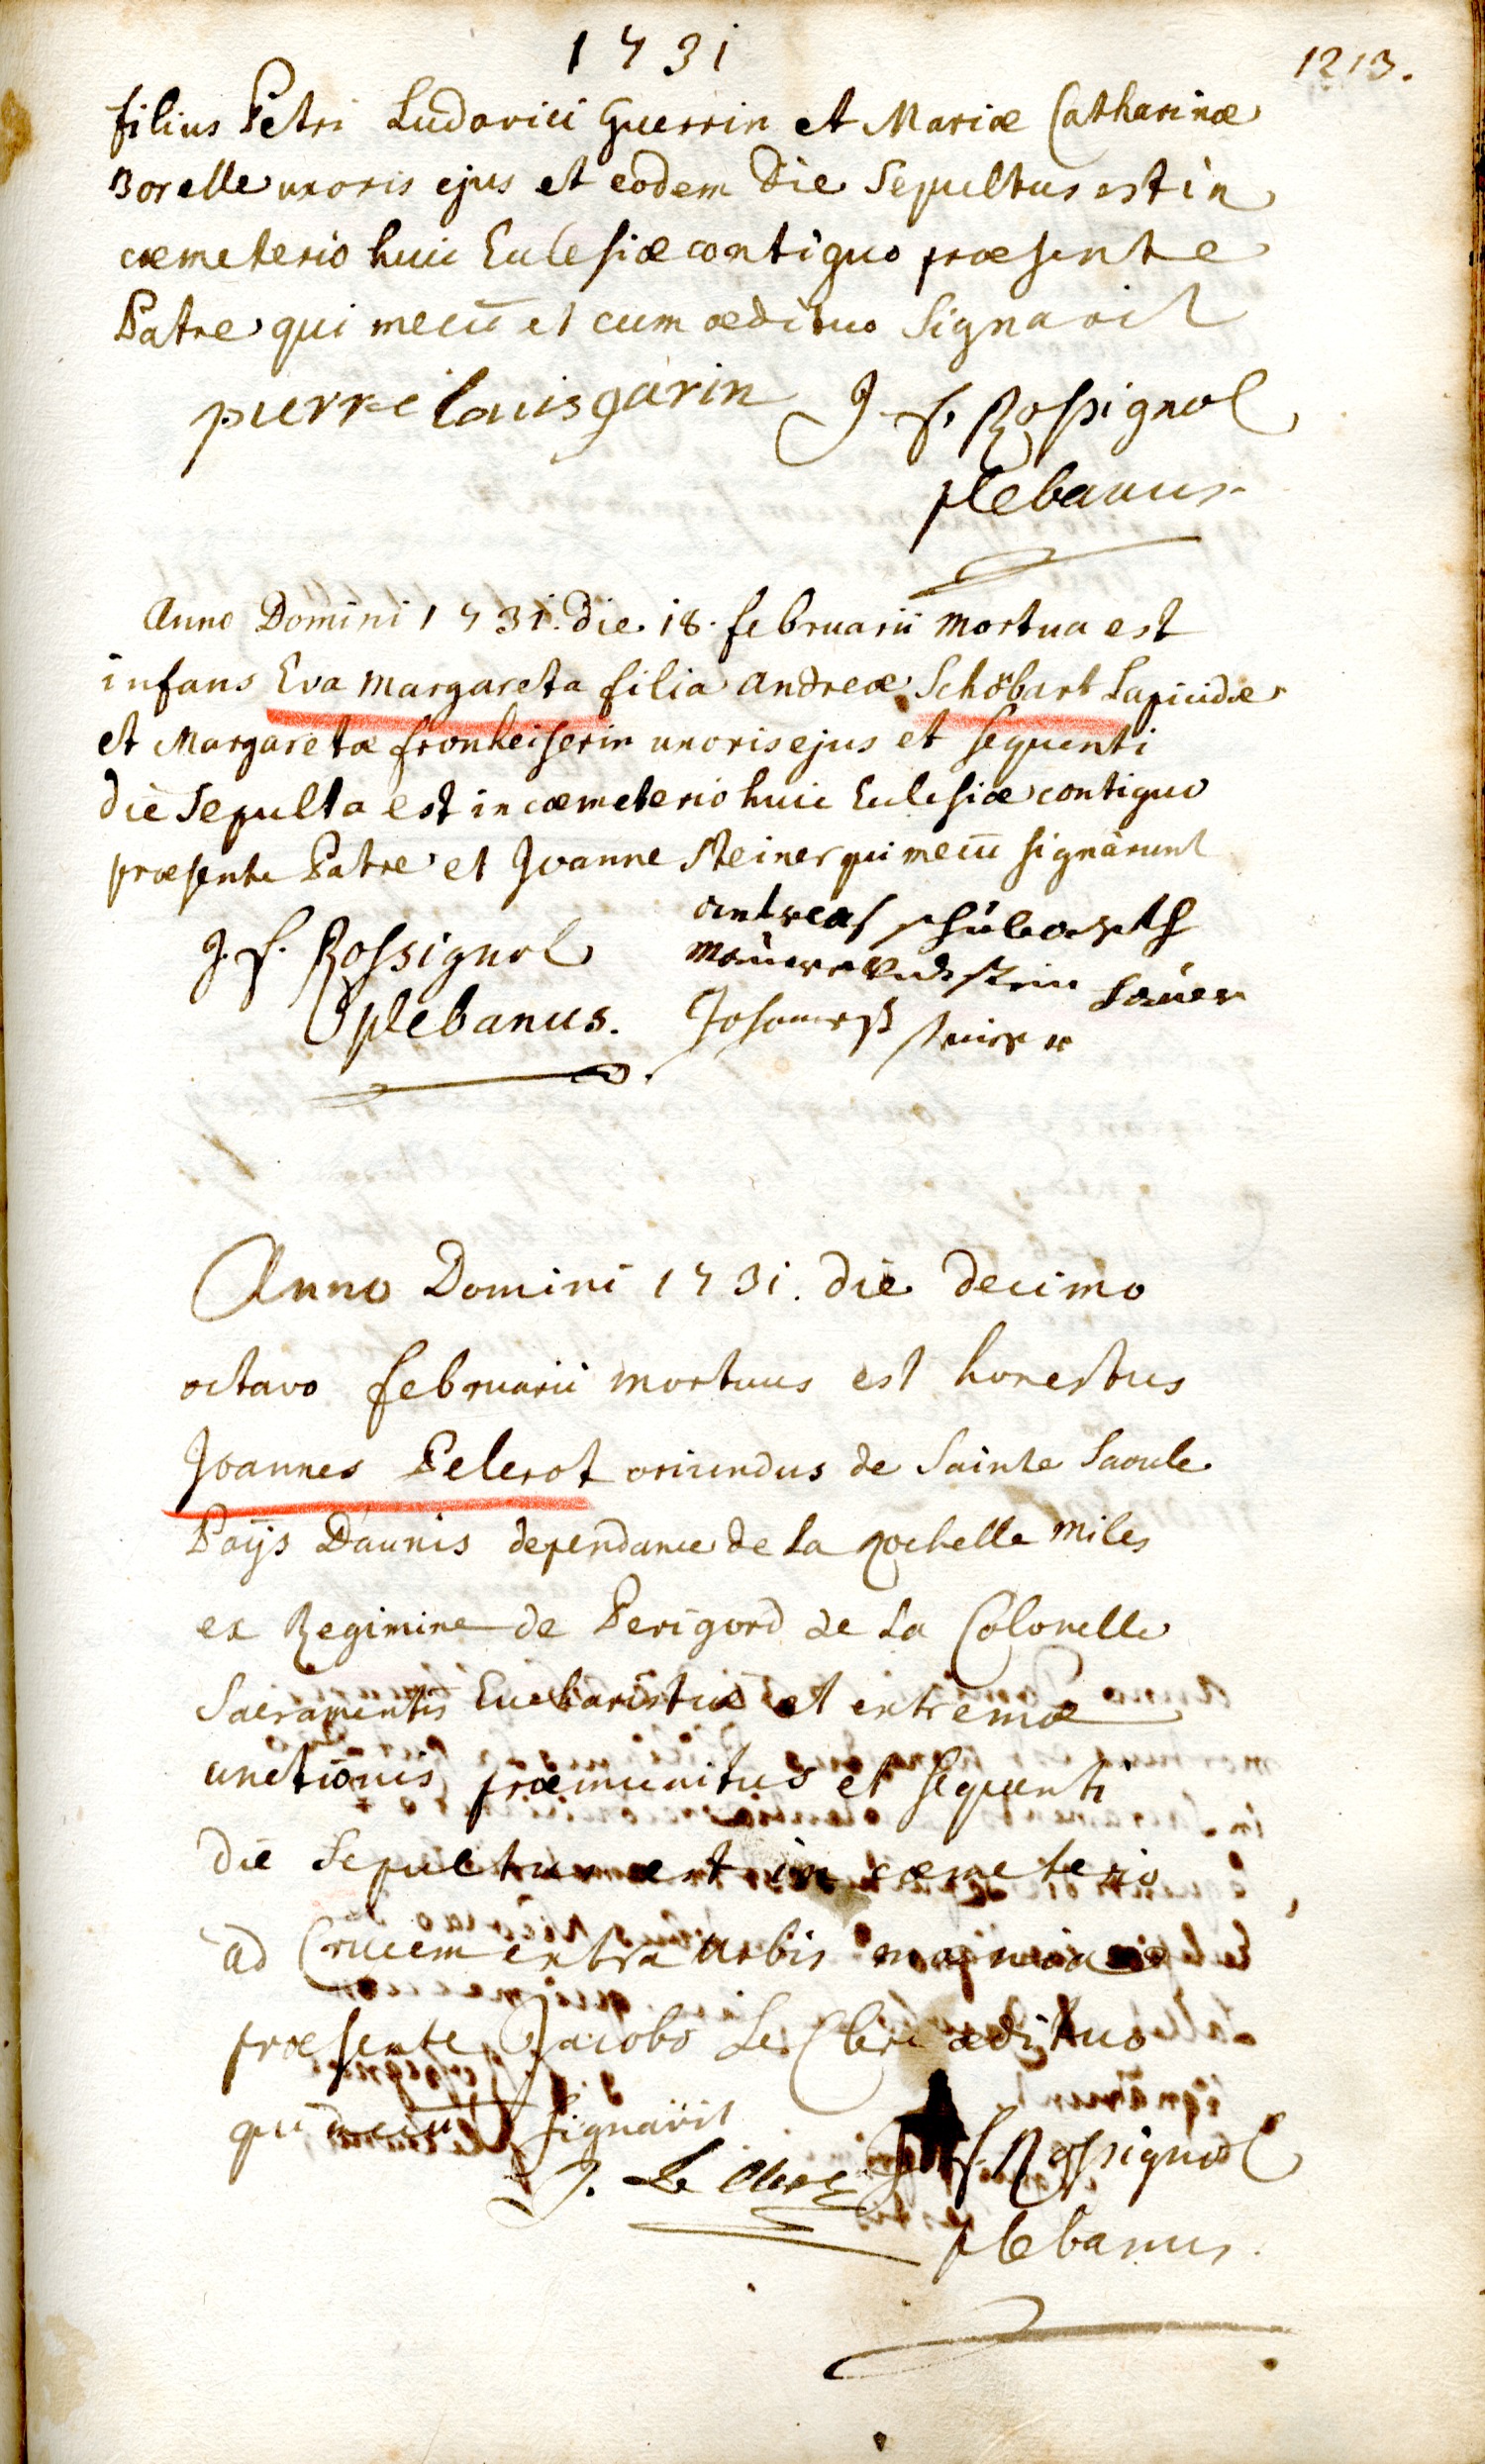 1731
1213.
filius Petri Ludovici Guerrin et Mariæ Catharinæ
Borelle uxoris ejus et eodem die Sepultus est in
cœmeterio huic Ecclesiæ contiguo præsente
Patre qui mecū et cum ædituo Signavit
pierre louis garin J. f. Rossignol
plebanus.
Anno Domini 1731. die 18. februarii mortua est
infans Eva Margareta filia Andreæ Schöbart Lapicidæ
et Margaretæ fronheiserin uxoris ejus et sequenti
die Sepulta est in cœmeterio huic Ecclesiæ contiguo
præsente Patre et Joanne Steiner qui mecū signàrunt
J. f. Rossignol
plebanus.
antreas
Anno Domini 1731. die decimo
octavo februarii mortuus est honestus
Joannes Pelerot oriundus de Sainte Saoule
Paÿs D'aunis dependance de la Rochelle miles
ex Regimine de Perigord de la Colonelle
Sacramentis Eucharistiæ et extremæ
unctionis præmunitus et sequenti
die Sepultus est in cœmeterio
ad Crucem extra urbis mœnia
præsente Jacobo Le Clerc ædituo
qui mecum signavit
J. Le Clerc J. f. Rossignol
plebanus.